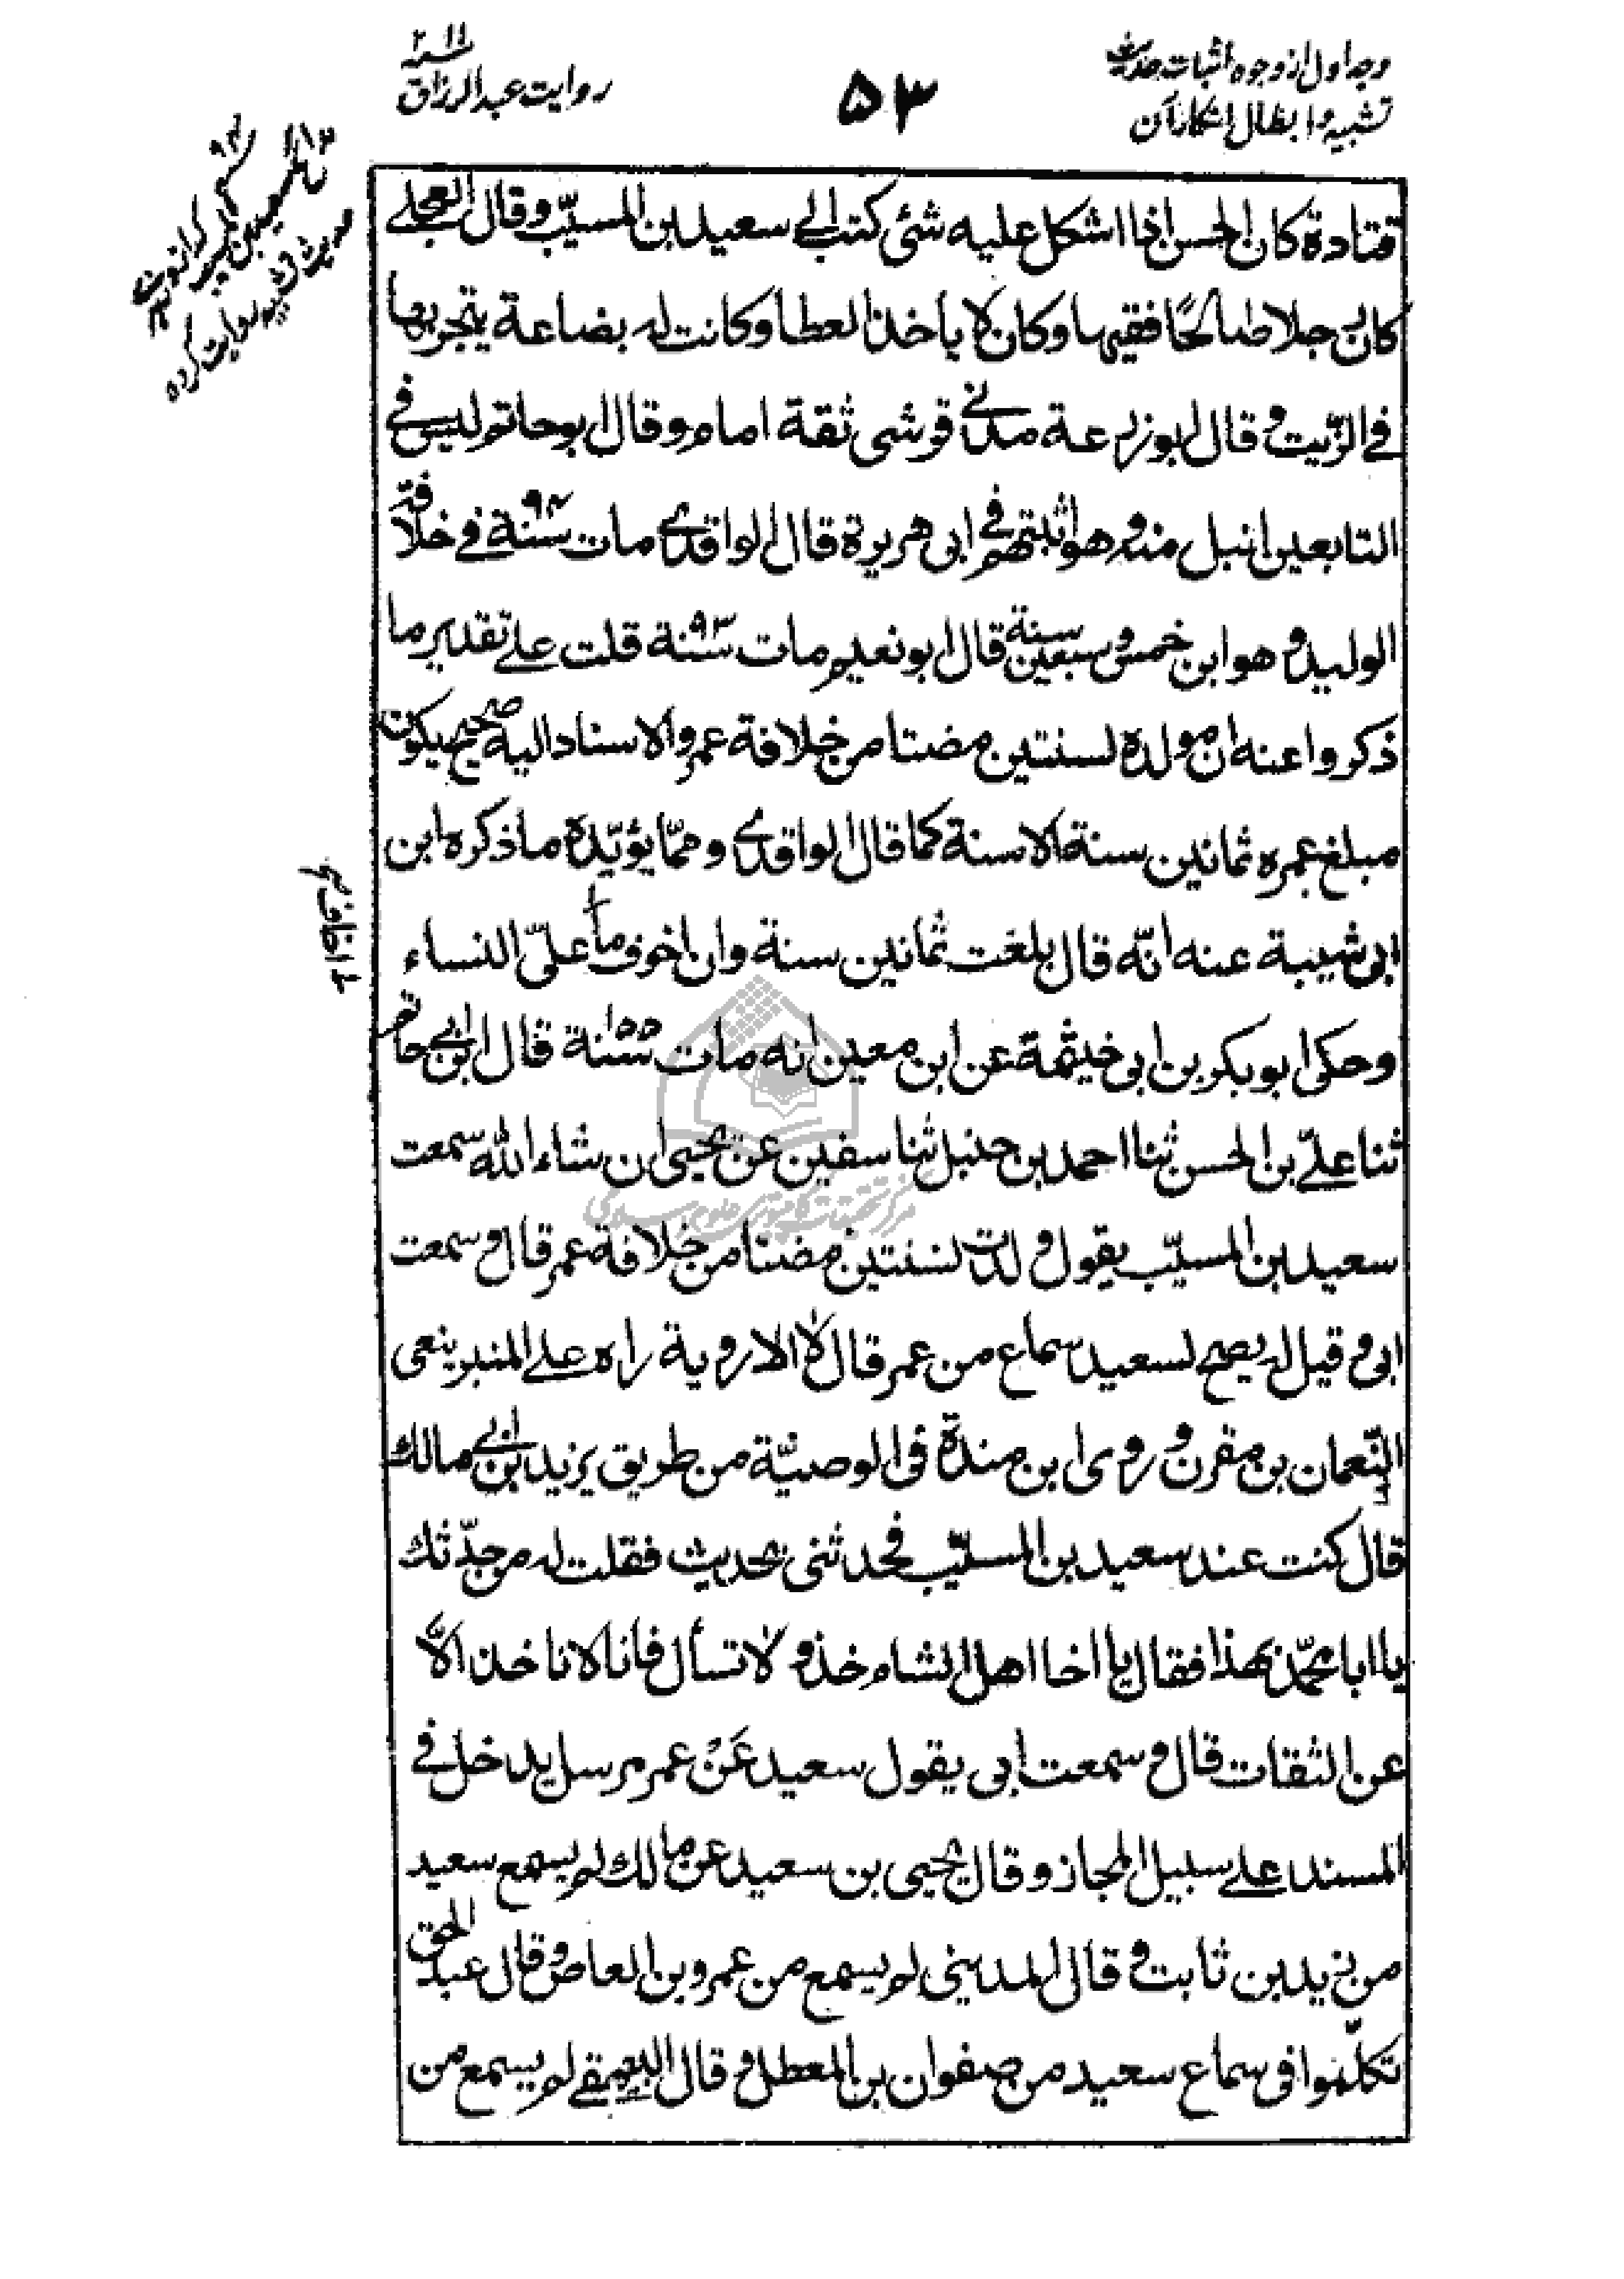 وجه اول از وجوه اثبات حدیث
تشبیه و ابطال انکار آن
۵۳
سنه ۲۱۱
روایت عبد الرزاق
قتادة كان الحسن اذا اشكل عليه شئ كتب الى سعيد بن المسيّب وقال العجلى
كان رجلا صالحًا فقيها وكان لا يأخذ العطا وكانت له بضاعة يتجر بها
فى الزّيت وقال ابو زرعة مدنى قرشى ثقة امام وقال ابو حاتم ليس فى
التابعين انبل منه وهو اثبتهم فى ابى هريرة قال الواقدى مات سنة ۹۴ فى خلافة
الوليد وهو ابن خمس وسبعين سنة قال ابو نعيم مات سنة ۹۳ قلت على تقدير ما
ذكروا عنه ان مولده لسنتين مضتا من خلافة عمر والاسناد اليه صحيح يكون
مبلغ عمره ثمانين سنة الا سنة كما قال الواقدى ومما يؤيّده ما ذكره ابن
ابى شيبة عنه انّه قال بلغت ثمانين سنة وان اخوف ما علىّ النساء
وحكى ابو بكر بن ابى خيثمة عن ابن معين انه مات سنة قال ابن ابى حاتم
ثنا علىّ بن الحسن ثنا احمد بن حنبل ثنا سفين عن يحيى ان شاء الله سمعت
سعيد بن المسيّب يقول ولدت لسنتين مضتا من خلافة عمر قال وسمعت
ابى وقيل له يصح لسعيد سماع من عمر قال لا الا روية راه على المنبر ينعى
النّعمان بن مقرن وروى ابن مندة فى الوصيّة من طريق يزيد بن ابى مالك
قال كنت عند سعيد بن المسيّب فحدثنى بحديث فقلت له من حدّثك
يا ابا محمّد بهذا فقال يا اخا اهل الشام خذ ولا تسأل فانا لا ناخذ الّا
عن الثقات قال وسمعت ابى يقول سعيد عَنْ عمر مرسل يدخل فى
المسند على سبيل المجاز وقال يحيى بن سعيد عن مالك لم يسمع سعيد
من زيد بن ثابت وقال المدينى لم يسمع من عمرو بن العاص وقال عبد الحق
تكلّموا فى سماع سعيد من صفوان بن المعطل وقال البيهقى لم يسمع من
مرکز تحقیقات کامپیوتری علوم اسلامی